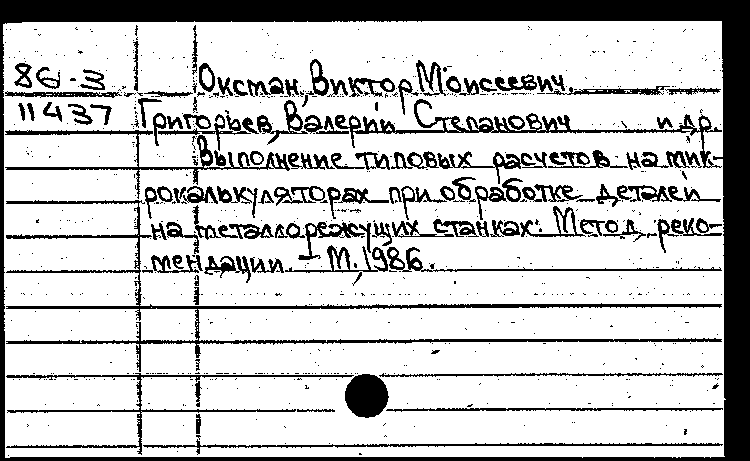 86-3 Оксман, Виктор Моисеевич.
11437 Григорьев, Валерий Степанович и др.
Выполнение типовых расчетов на мик-
рокалькуляторах при обработке деталей
на металлорежущих станках: Метод. реко-
мендации. - М., 1986.